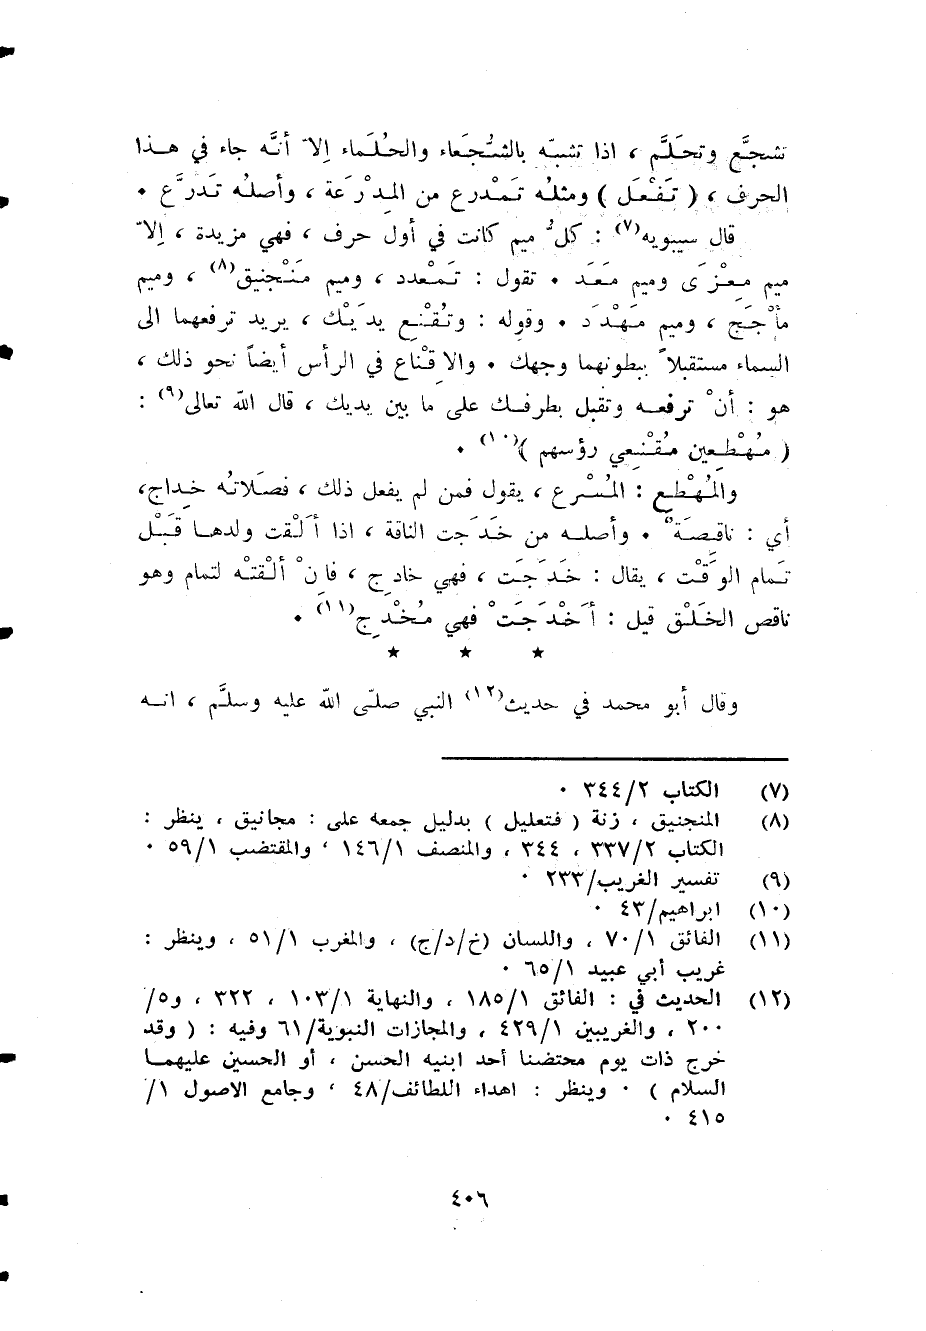 تشجَّع وتحلَّم ، اذا تشبّه بالشُجَعاء والحُلَماء إلاّ أنَّه جاء في هذا
الحرف ، ( تَفْعَل ) ومثلُه تَمْدرع من المِدْرَعة ، وأصلُه تَدرَّع •
قال سيبويه(٧) : كلُّ ميم كانت في أول حرف ، فهي مزيدة ، إلاّ
ميم مِعْزَى وميم مَعَد • تقول : تَمعْدد ، وميم مَنْجنيق(٨) ، وميم
مأْجَج ، وميم مَهْدَد • وقوله : وتُقْنع يدَيْك ، يريد ترفعهما الى
السماء مستقبلاً ببطونهما وجهك • والاِقْناع في الرأس أيضاً نحو ذلك ،
هو : أنْ ترفعه وتقبل بطرفك على ما بين يديك ، قال الله تعالى(٩) :
( مُهْطِعين مُقْنعي رؤسهم )(١٠) •
والمُهْطِع : المُسْرع ، يقول فمن لم يفعل ذلك ، فصَلاتُه خِداج،
أي : ناقِصَة • وأصله من خَدَجت الناقة ، اذا أَلْقت ولدها قَبْل
تَمام الوَقْت ، يقال : خَدَجَت ، فهي خادِج ، فانْ ألْقتْه لتمام وهو
ناقص الخَلْق قيل : أَخْدَجَتْ فهي مُخْدِج(١١) •
★ ★ ★
وقال أبو محمد في حديث(١٢) النبي صلّى الله عليه وسلَّم ، انه
(٧) الكتاب ٣٤٤/٢ •
(٨) المنجنيق ، زنة ( فتعليل ) بدليل جمعه على : مجانيق ، ينظر :
الكتاب ٣٣٧/٢ ، ٣٤٤ ، والمنصف ١٤٦/١ ، والمقتضب ٥٩/١ •
(٩) تفسير الغريب/٢٣٣ •
(١٠) ابراهيم/٤٣ •
(١١) الفائق ٧٠/١ ، واللسان (خ/د/ج) ، والمغرب ٥١/١ ، وينظر :
غريب أبي عبيد ٦٥/١ •
(١٢) الحديث في : الفائق ١٨٥/١ ، والنهاية ١٠٣/١ ، ٣٢٢ ، و٥/
٢٠٠ ، والغريبين ٤٢٩/١ ، والمجازات النبوية/٦١ وفيه : ( وقد
خرج ذات يوم محتضنا أحد ابنيه الحسن ، أو الحسين عليهما
السلام ) • وينظر : اهداء اللطائف/٤٨ ، وجامع الاصول ١/
٤١٥ •
٤٠٦